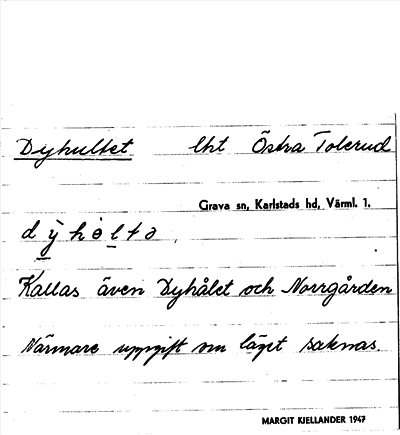 Dyhultet lht Östra Tolerud
Grava sn, Karlstads hd, Värml. 1.
dỳ̲hòl̲tə.
Kallas även Dyhålet och Norrgården
Närmare uppgift om läget saknas.
MARGIT KJELLANDER 1947